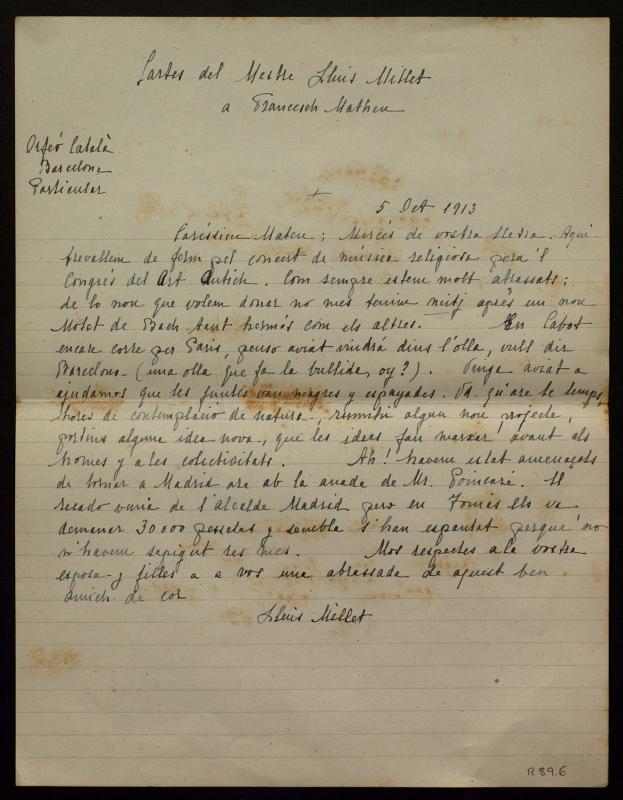 Cartes del Mestre Lluis Millet
a Francesch Matheu
Orfeó Català
Barcelona
Particular
+
5 Oct 1913
Caríssim Mateu; Mercés de vostra lletra. Aqui
trevallem de ferm pel concert de música religiosa pera 'l
Congrés del Art Antich. Com sempre estem molt atrassats;
de lo nou que volem donar no mes tenim mitj aprés un nou
Motet de Bach tant hermós com els altres. En Cabot
encare corre per Paris, penso aviat vindrá dins l'olla, vull dir
Barcelona (una olla que fa la bullida, oy?). Vinga aviat a
ajudarnos que les juntes van magres y espayades. Vd. qu'are te temps,
hores de contemplació de natura, rumihi algun nou projecte,
portins alguna idea nova, que les ideas fan marxar avant als
homes y a les colectivitats. Ah! havem estat amenaçats
de tornar a Madrid are ab la anada de Mr. Poincaré. El
recado venia de l'alcalde Madrid pero en Tomás els va
demanar 30000 pessetas y sembla s'han espantat perqué no
n'havem sapigut res mes. Mos respectes a la vostra
esposa y filles a a vos una abrassada de aquest ben
amich de cor
Lluis Millet
R 89.6